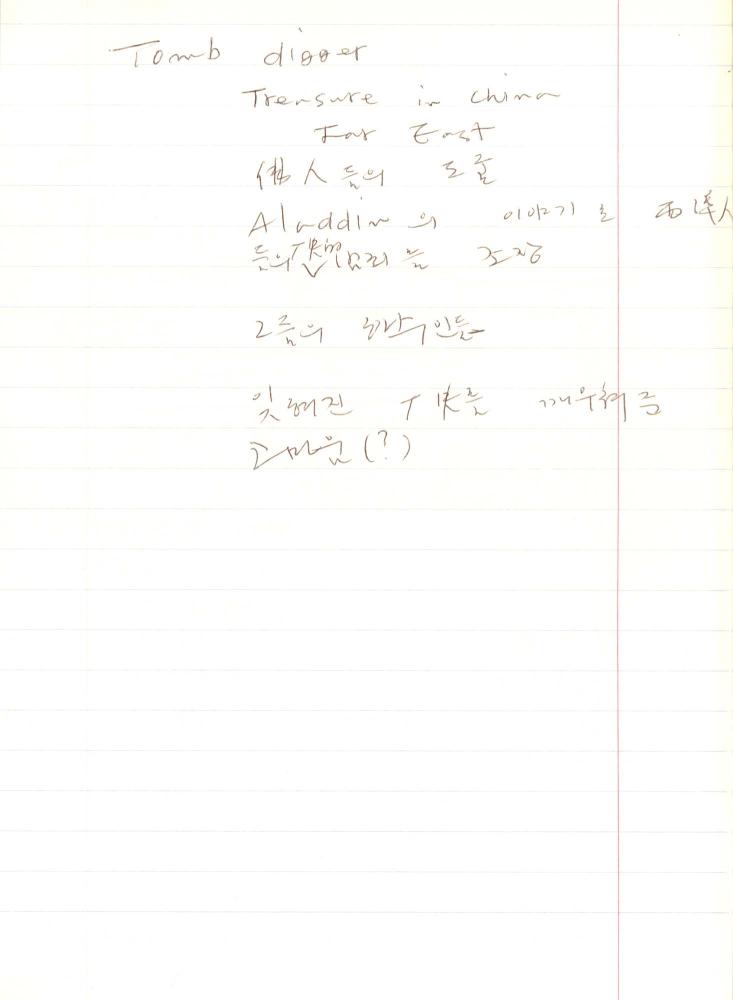 Tomb digger
Treasure in China
Far East
佛人들의 도굴
Aladdin의 이야기로 西洋人
들의 心理를 조장
그들의 하수인들
잊혀진 를 깨우쳐 준
고마움(?)